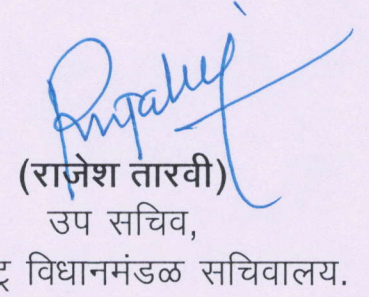 (राजेश तारवी)
उप सचिव,
विधानमंडळ सचिवालय.